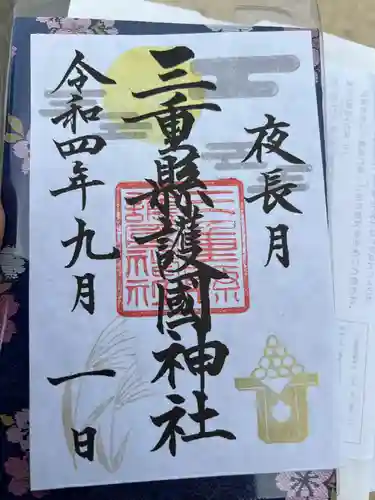 夜長月
三重縣護國神社
令和四年九月
一日